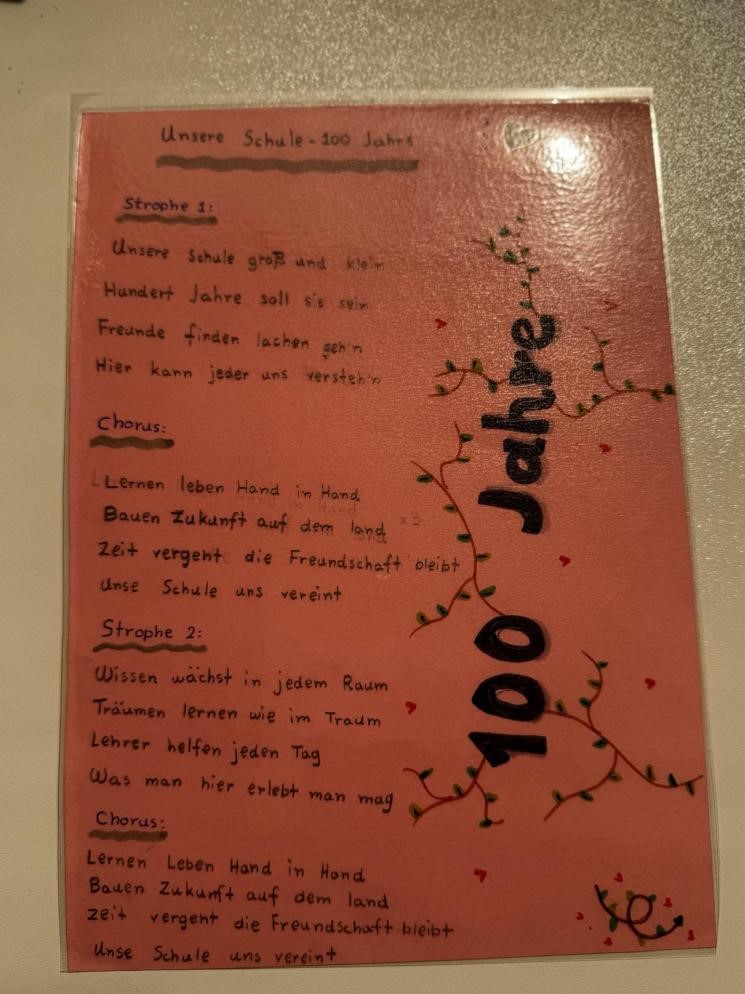 Unsere Schule - 100 Jahre
Strophe 1:
Unsere Schule groß und klein
Hundert Jahre soll sie sein
Freunde finden lachen geh'n
Hier kann jeder uns versteh'n
Chorus:
Lernen leben Hand in Hand
Bauen Zukunft auf dem land x3
Zeit vergeht die Freundschaft bleibt
Unse Schule uns vereint
Strophe 2:
Wissen wächst in jedem Raum
Träumen lernen wie im Traum
Lehrer helfen jeden Tag
Was man hier erlebt man mag
Chorus:
Lernen Leben Hand in Hand
Bauen Zukunft auf dem land
zeit vergeht die Freundschaft bleibt
Unse Schule uns vereint
100 Jahre